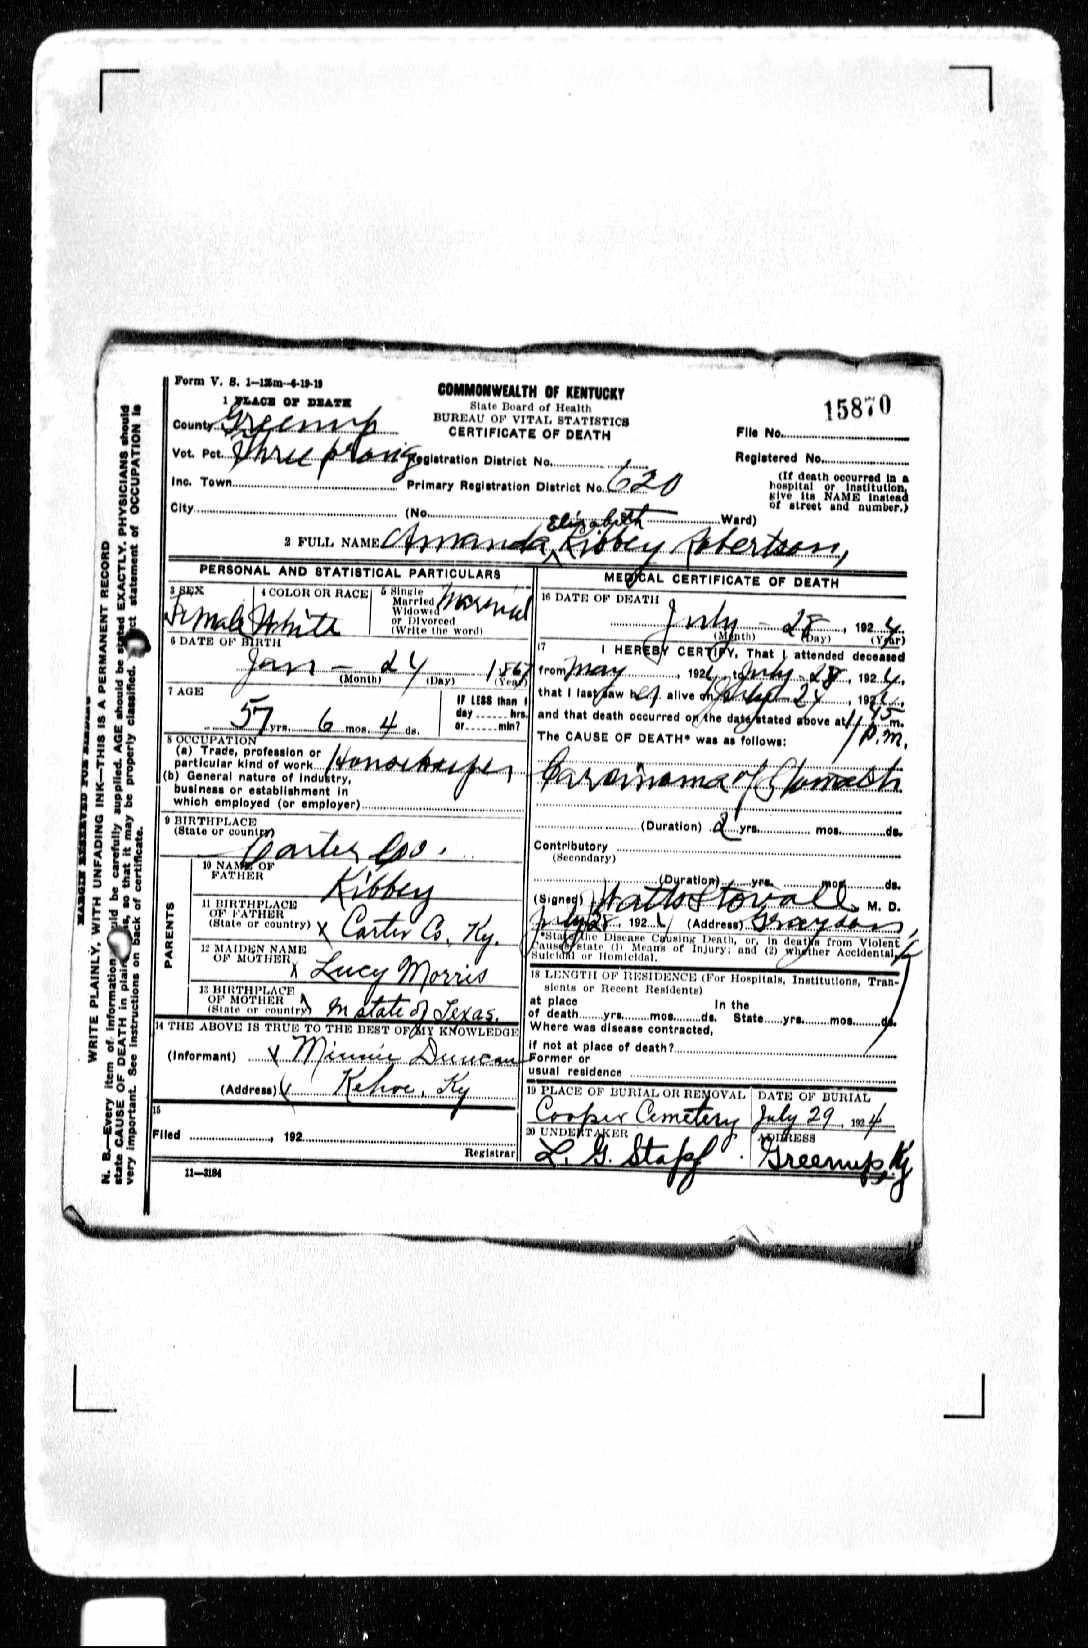 Form V. S. 1—125m—6-19-19
COMMONWEALTH OF KENTUCKY
State Board of Health
BUREAU OF VITAL STATISTICS
CERTIFICATE OF DEATH
15870
File No.
Registered No.
(If death occurred in a
hospital or institution,
give its NAME instead
of street and number.)
1 PLACE OF DEATH
County Greenup
Vot. Pct. Three prong Registration District No.
Inc. Town Primary Registration District No. 620
City (No. Ward)
Elizabeth
2 FULL NAME Amanda ^ Kibbey Robertson,
PERSONAL AND STATISTICAL PARTICULARS
3 SEX
Female
4 COLOR OR RACE
White
5 Single
Married
Widowed
or Divorced
(Write the word)
Married
6 DATE OF BIRTH
Jan - 24 1867
(Month) (Day) (Year)
7 AGE
57 yrs. 6 mos. 4 ds.
IF LESS than 1
day hrs.
or min?
8 OCCUPATION
(a) Trade, profession or
particular kind of work Housekeeper
(b) General nature of industry,
business or establishment in
which employed (or employer)
9 BIRTHPLACE
(State or country)
Carter Co.
PARENTS
10 NAME OF
FATHER
Kibbey
11 BIRTHPLACE
OF FATHER
(State or country) x Carter Co, Ky.
12 MAIDEN NAME
OF MOTHER x Lucy Morris
13 BIRTHPLACE
OF MOTHER
(State or country) In state of Texas.
14 THE ABOVE IS TRUE TO THE BEST OF MY KNOWLEDGE
(Informant) x Minnie Duncan
(Address) Kehoe, Ky
15
Filed , 192
Registrar
11—3184
MEDICAL CERTIFICATE OF DEATH
16 DATE OF DEATH
July - 28, 1924
(Month) (Day) (Year)
17 I HEREBY CERTIFY, That I attended deceased
from May , 1924, to July - 28, 1924,
that I last saw her alive on July 24, 1924,
and that death occurred on the date stated above at 1 45 m.
P.M.
The CAUSE OF DEATH* was as follows:
Carcinoma of Stomach
(Duration) 2 yrs. mos. ds.
Contributory
(Secondary)
(Duration) yrs. mos. ds.
(Signed) Watts Stovall M. D.
July 28, 1924 (Address) Grayson, Ky
*State the Disease Causing Death, or, in deaths from Violent
Causes, state (1) Means of Injury; and (2) whether Accidental,
Suicidal or Homicidal.
18 LENGTH OF RESIDENCE (For Hospitals, Institutions, Tran-
sients or Recent Residents)
at place In the
of death yrs. mos. ds. State yrs. mos. ds.
Where was disease contracted,
if not at place of death?
Former or
usual residence
19 PLACE OF BURIAL OR REMOVAL
Cooper Cemetery
DATE OF BURIAL
July 29, 1924
20 UNDERTAKER
L. G. Stapf
ADDRESS
Greenup, Ky
MARGIN RESERVED FOR BINDING
WRITE PLAINLY, WITH UNFADING INK—THIS IS A PERMANENT RECORD
N. B.—Every item of information should be carefully supplied. AGE should be stated EXACTLY. PHYSICIANS should
state CAUSE OF DEATH in plain terms, so that it may be properly classified. Exact statement of OCCUPATION is
very important. See instructions on back of certificate.